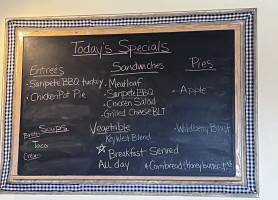 Today's Specials
Entree's
-Sanpete BBQ turkey
-Chicken Pot Pie
Sandwiches
-Meatloaf
-Sanpete BBQ
-Chicken Salad
-Grilled Cheese BLT
Pies
-Apple
-Wildberry
Soups
Taco
Vegetable
Key West Blend
Breakfast Served
All day
Cornbread (Honey butter